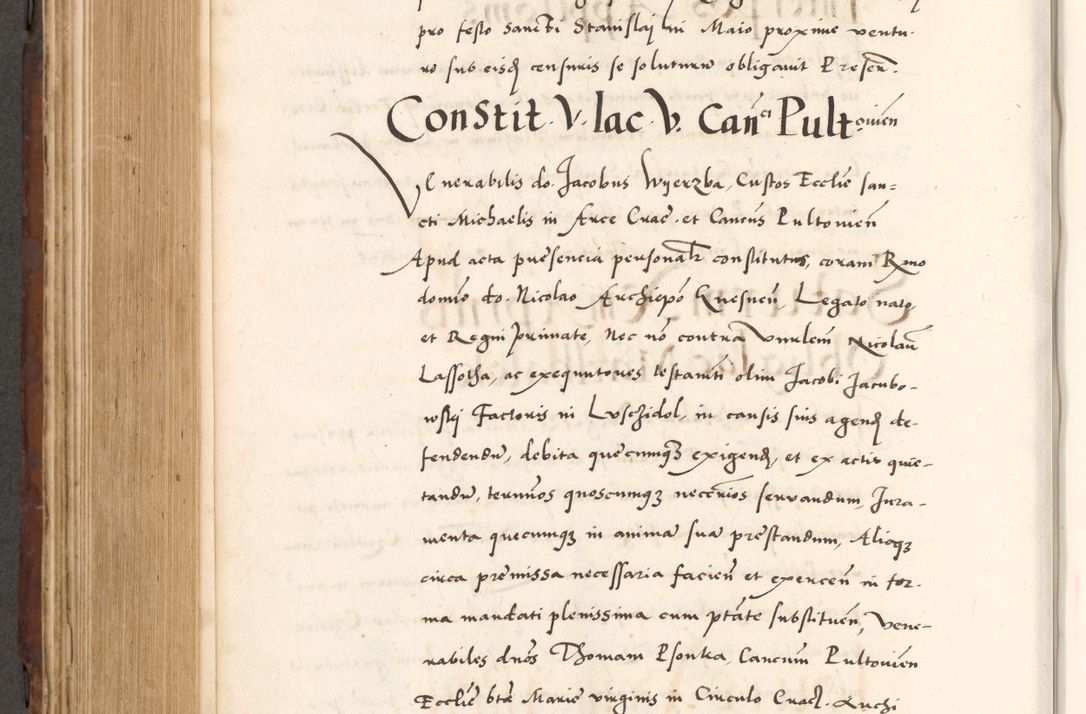 pro festo Sancti Stanislaj in Maio proxime ventu-
ro sub eisdem censuris se soluturum obligauit Presen̄.
Constit. V. Iac. V. Can̄ci Pultouien
Venerabilis do. Jacobus Wyerzba, Custos Ecclīe san=
cti Michaelis in Arce Crac̄. et Cancus Pultouien̄
Apud acta presencia personalr constitutus, coram Rmo
domīo do. Nicolao Archiepo Gnesnen̄, Legato nato,
et Regni primate, Nec nō contra vnrlem Nicolaū
Lassotha, ac exequutores testamti olim Jacobi Jacubo-
wskj Factoris in Lvschidol, in causis suis agend de-
fendendū, debita quecumqꝫ exigend, et ex actis quie-
tandū, termīos quoscumqꝫ neccrios servandum, Jura-
menta quecumqꝫ in anima sua prestandum, Aliaqꝫ
circa premissa necessaria facien̄ et exercen̄ in for-
ma mandati plenissima cum ptate substituen̄, Vene-
rabiles dnos Thomam Psonka, Cancum Pultouien
Ecclīe btē Marie virginis in Circulo Crac̄.